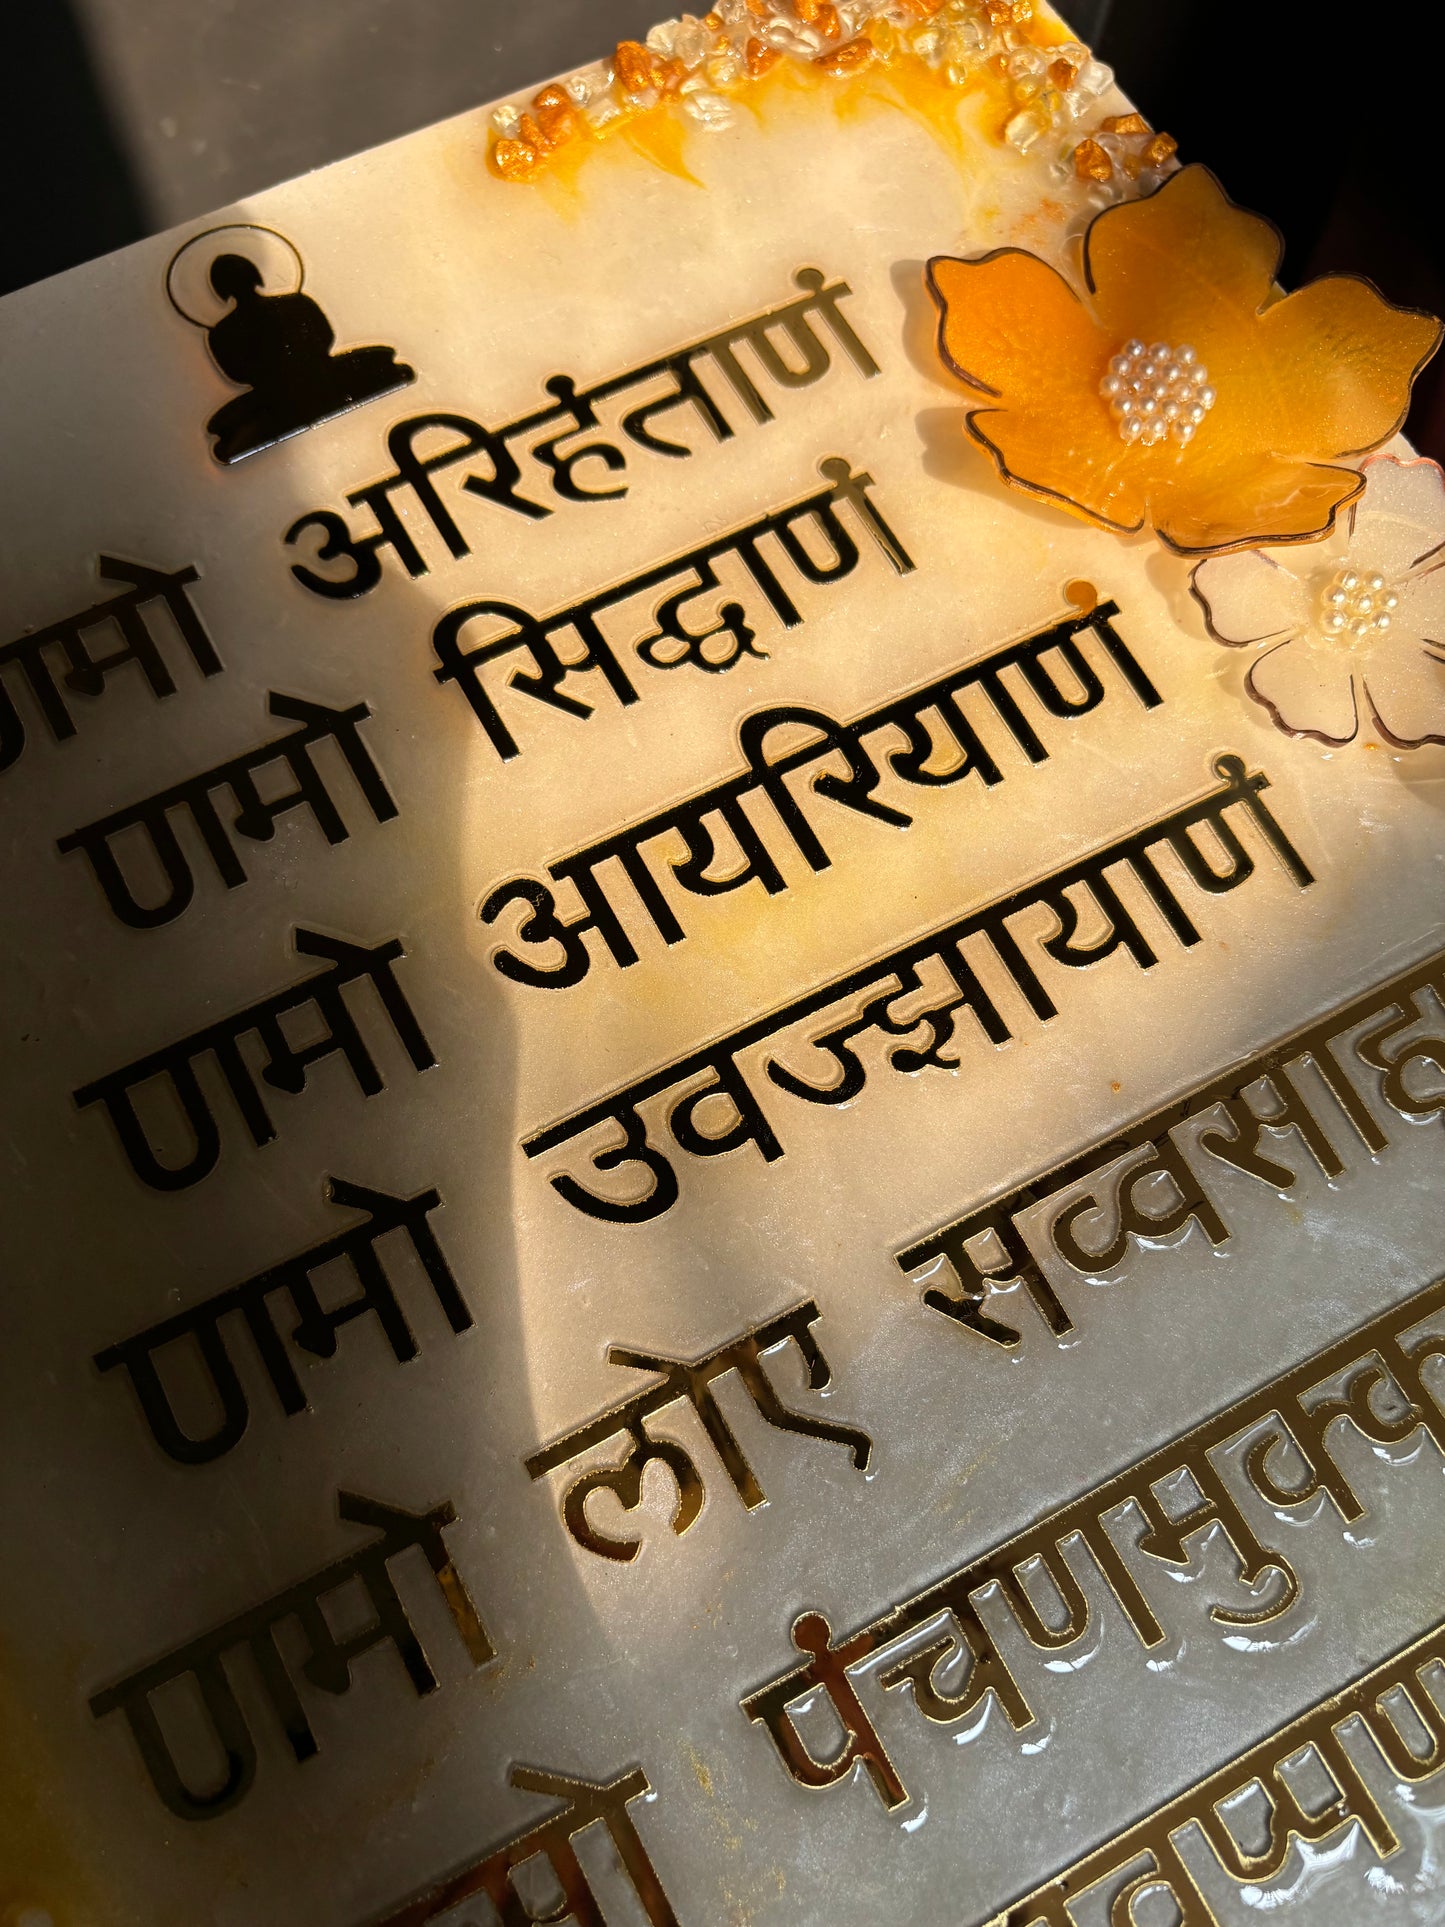 णमो अरिहंताणं
णमो सिद्धाणं
णमो आयरियाणं
णमो उवज्झायाणं
णमो लोए सव्वसाहू
पंचणमुक्क
वप्पण